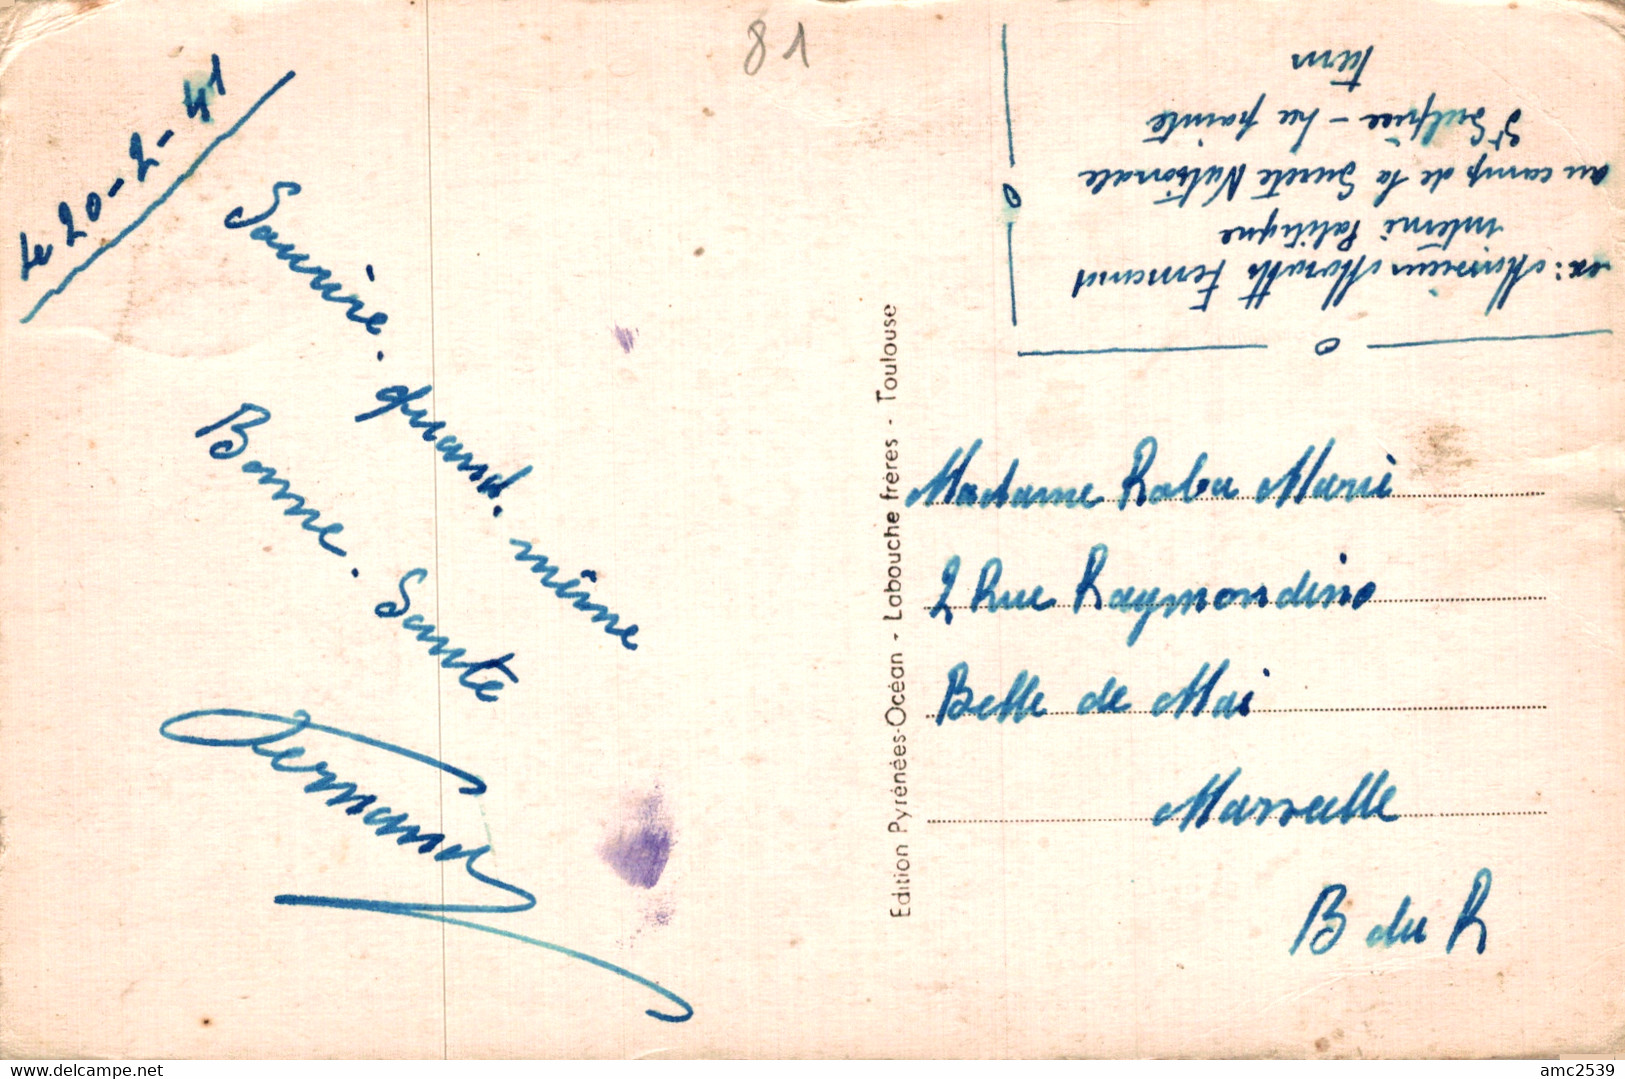 81
le 20-2-41
Sourire. quand. même
Bonne. Sante
Fernand
Edition Pyrénées-Océan - Labouche frères - Toulouse
ex: Monsieur Moratti Fernand
interné Politique
au camp de la Sureté Nationale
St Sulpice - La pointe
Tarn
Madame Raba Marie
2 Rue Raymondino
Belle de Mai
Marseille
B du R
delcampe.net
amc2539